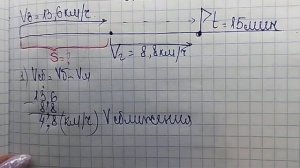 Vб=13,6км/ч
t=15мин
S-?
V2=8,8км/ч
1) Vсб=Vб-Vм
13,6
8,8
4,8(км/ч) Vсближения